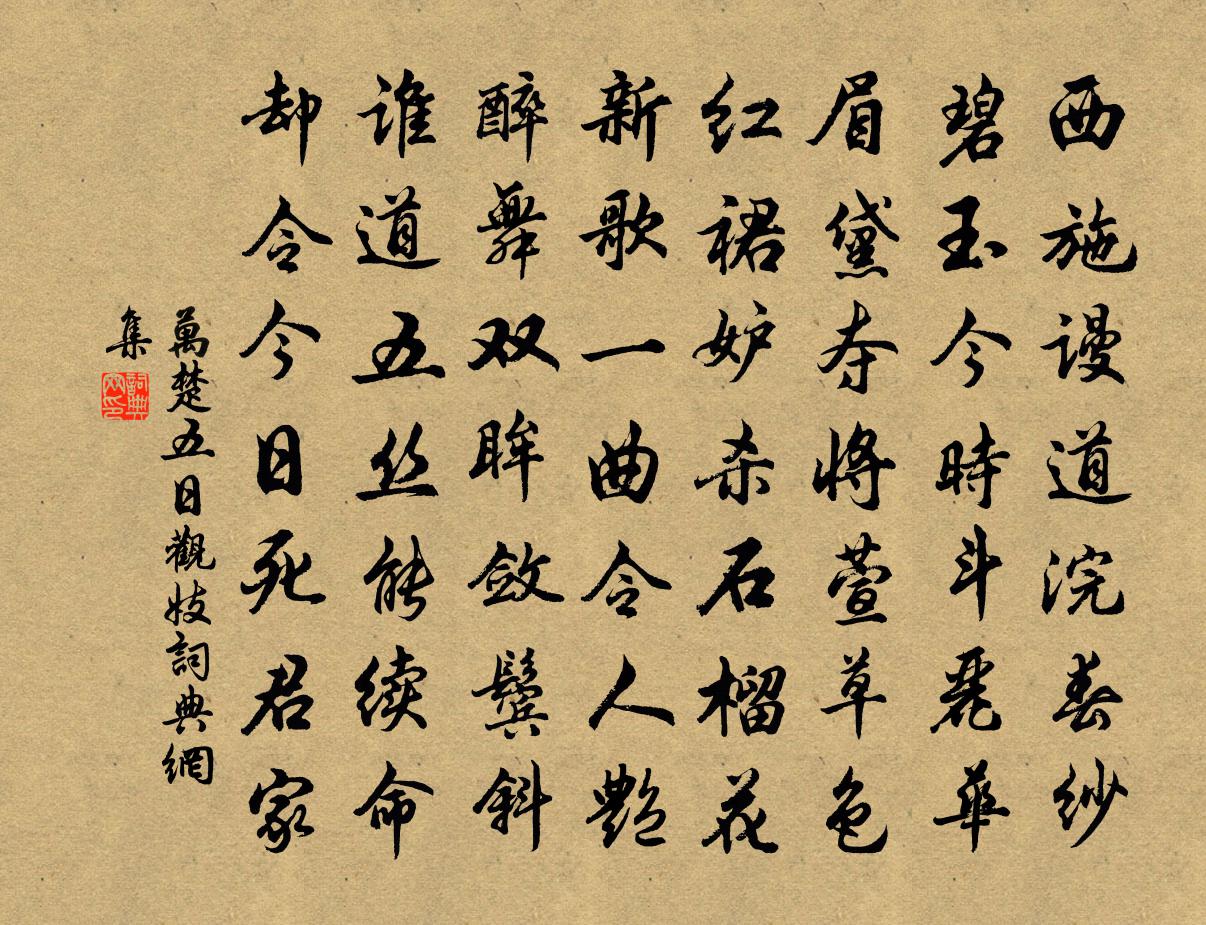 西施谩道浣春纱
碧玉今時斗麗華
眉黛夺將萱草色
红裙妒杀石榴花
新歌一曲令人艷
醉舞双眸敛鬓斜
谁道五丝能续命
却令今日死君家
萬楚五日觀妓詞典網
集
詞典
网印